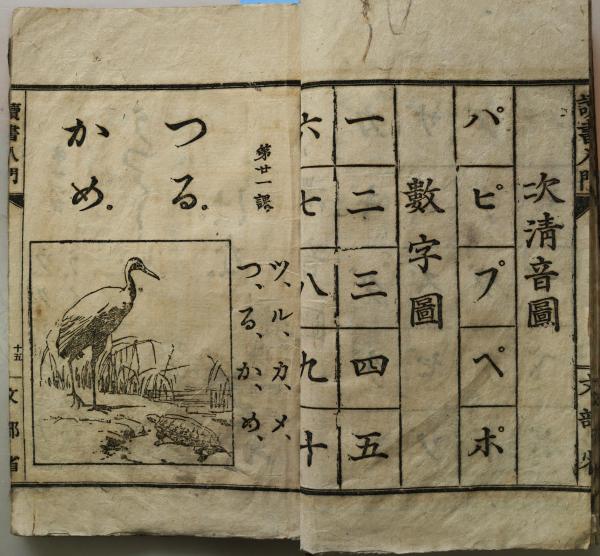 讀書入門
次清音圖
パピプペポ
數字圖
一二三四五
六七八九十
文部省
第廿一課
ツ、ル、カ、メ、
つ、る、か、め、
つる。
かめ。
讀書入門
十五
文部省